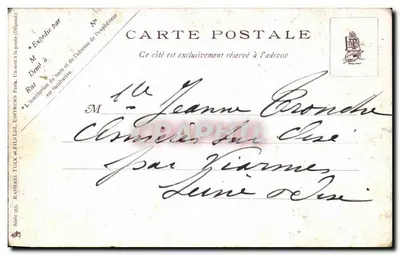 CARTE POSTALE
Ce côté est exclusivement réservé à l'adresse
* Expédié par
M N°
Dem<sup>t</sup> à
Rue
* L'inscription du nom et de l'adresse de l'expéditeur
est facultative.
M lle Jeanne Tronche
Asnières sur Oise
par Viarmes
Seine & Oise
RAPHAEL TUCK ET FILS LTD. EDITEURS PARIS.